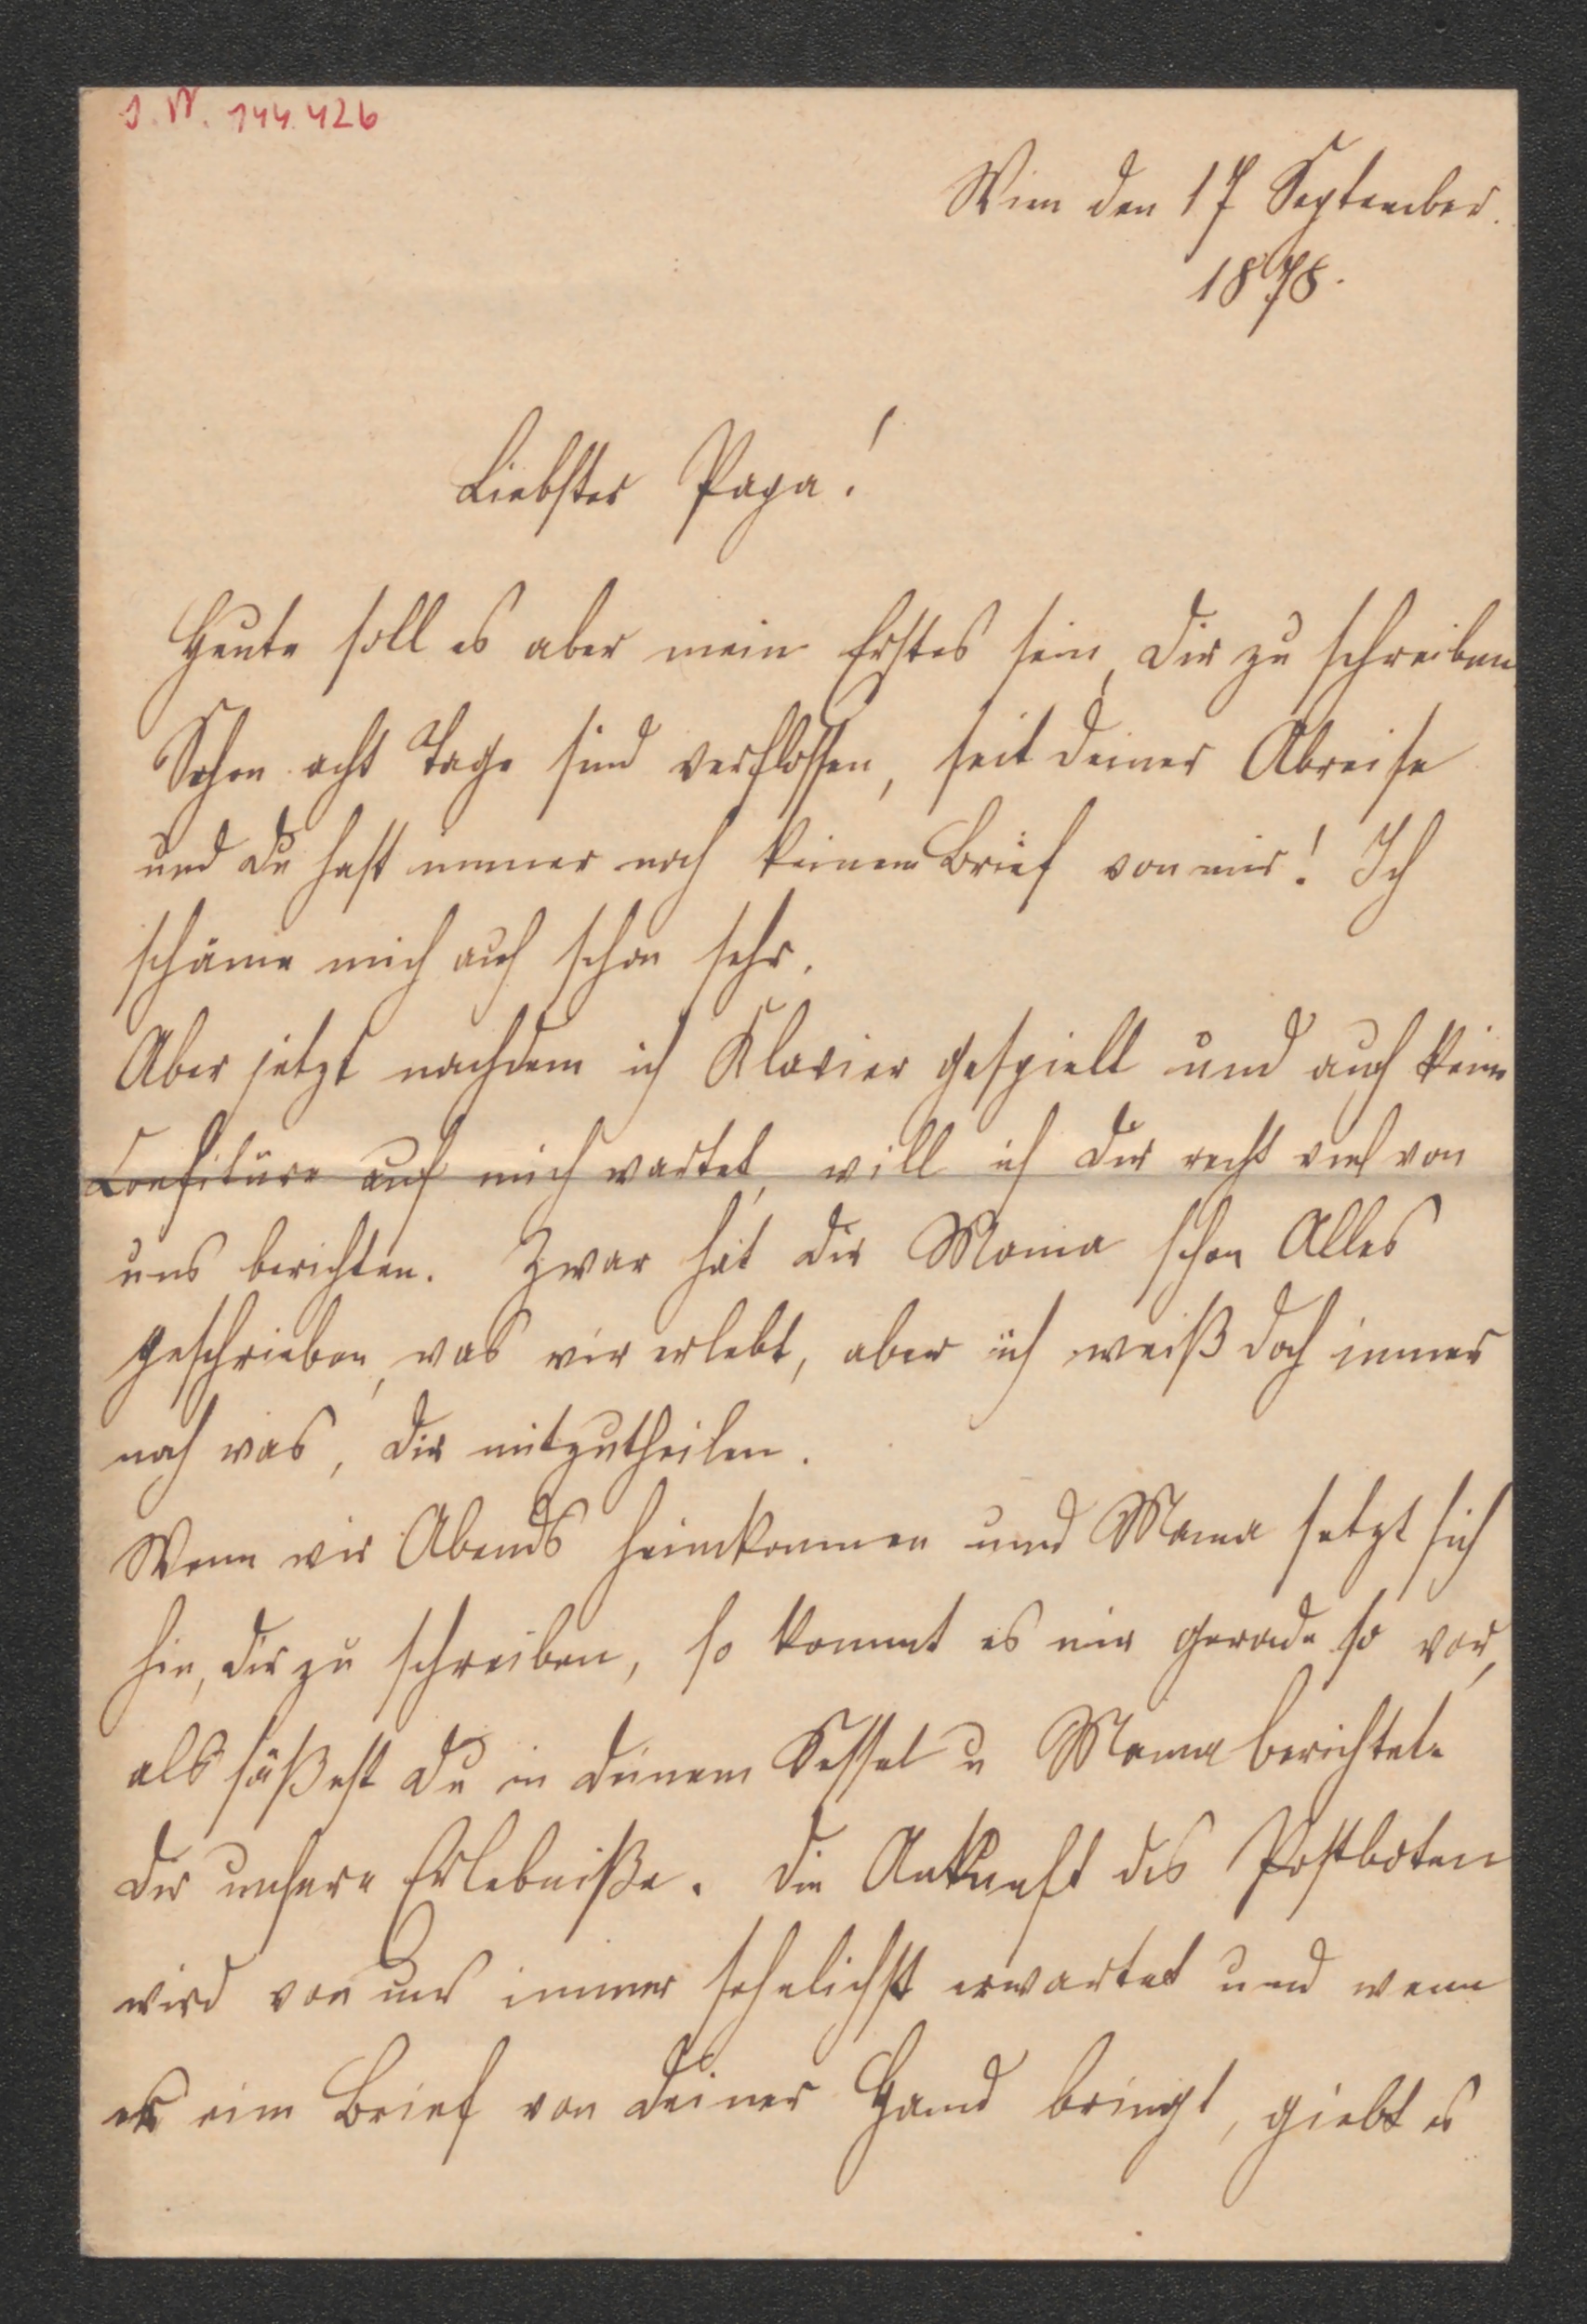 J. N. 144.426
Wien den 17 September.
1878.
Liebster Papa!
Heute soll es aber mein Erstes sein, Dir zu schreiben.
Schon acht Tage sind verflossen, seit Deiner Abreise
und Du hast immer noch keinen Brief von mir! Ich
schäme mich auch schon sehr.
Aber jetzt nachdem ich Klavier gespielt und auch keine
Confitüre auf mich wartet, will ich Dir recht viel von
uns berichten. Zwar hat Dir Mama schon Alles
geschrieben, was wir erlebt, aber ich weiß doch immer
noch was, Dir mitzutheilen.
Wenn wir Abends heimkommen und Mama setzt sich
hin, Dir zu schreiben, so kommt es mir gerade so vor,
als säßest Du in Deinem Sessel u Mama berichtete
Dir unsere Erlebniße. Die Ankunft des Postboten
wird von uns immer sehnlichst erwartet und wenn
er ein Brief von Deiner Hand bringt, giebt es